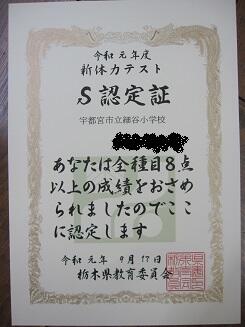 令和元年度
新体力テスト
S認定証
宇都宮市立細谷小学校
あなたは全種目8点
以上の成績をおさめ
られましたのでここ
に認定します
令和元年9月17日
栃木県教育委員会